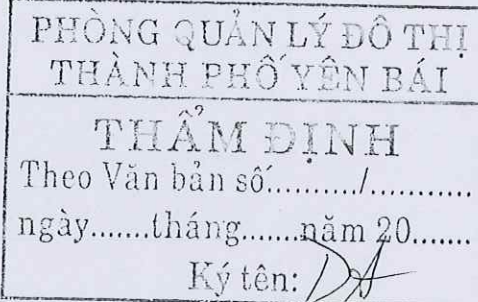 PHÒNG QUẢN LÝ ĐÔ THỊ
THÀNH PHỐ YÊN BÁI
THẨM ĐỊNH
Theo Văn bản số:........./...........
ngày.......tháng.......năm 20.......
Ký tên: